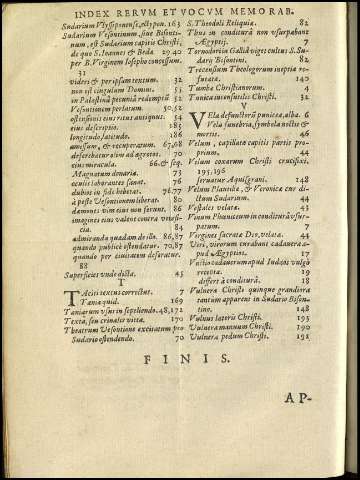 INDEX RERUM ET VOCUM MEMORAB.
Sudarium Vlyssiponense, ectypon. 163
Sudarium Vesontinum, sine Bisontinum
, est Sudarium capitis Christi,
de quo S. Ioannes & Beda 29.40
per B. Virginem Iosepho concessum.
31
videri & per ipsum textum. 32
non est cingulum Domini. 53
in Palæstina pecunia redemptũ 52
Vesontionem perlatum. 50,52
ostensionis eius ritus antiquus. 54
eius descriptio. 185
longitudo, latitudo. 186
amissum, & recuperatum. 67,68
deferebatur olim ad ægrotos. 70
eius miracula. 66. & seq.
Magnatum donaria. 73
oculis laborantes sanat. 76
dubios in fide hebetat. 76.77
à peste Vesontionem liberat. 80
dæmones vim eius non ferunt. 86
imagines eius valent contra venesicia
. 84
admiranda quædam de illo. 86,87
quando publicè ostendatur. 70,87
quando per ciuitatem deferatur.
88
Superficies unde dicta. 45
T
TAciti textus correctus. 7
Tæniæ quid. 169
Tæniarum vsus in sepeliendo. 48,171
Texta, seu crinales vittæ. 170
Theatrum Vesontione excitatum pro
Sudario ostendendo. 70
S. Theoduli Reliquiæ. 82
Thus in conditura non vsurpabant
Ægyptij. 7
Tornodorion Galliæ viget cultus S. Sudarij
Bisontini. 82
Trecensium Theologorum ineptia refutata
. 140
Tumba Christianorum. 4
Tunica inconsutilis Christi. 32
V
VEla defunctorũ punicea, alba. 6
Vela funebria, symbola noctis &
mortis. 46
Velum, capillatæ capitis partis proprium
. 44
Velum coxarum Christi crucifixi.
195.196
seruatur Aquisgrani. 148
Velum Planctiæ, & Veronicæ cur dictum
Sudarium. 44
Vestales velatæ. 43
Vinum Phœniceum in conditurâ vsurpatum
. 7
Virgines sacratæ Deo, velatæ. 44
Viri, virorum curabant cadauera apud
Ægyptios. 17
Vnctio cadauerum apud Iudæos vulgò
recepta. 19
differt à conditurâ. 18
Vulnera Christi quinque grandiora
tantùm apparent in Sudario Bisontino
. 148
Vulnus lateris Christi. 195
Vulnera manuum Christi. 190
Vulnera pedum Christi. 191
FINIS.
AP-